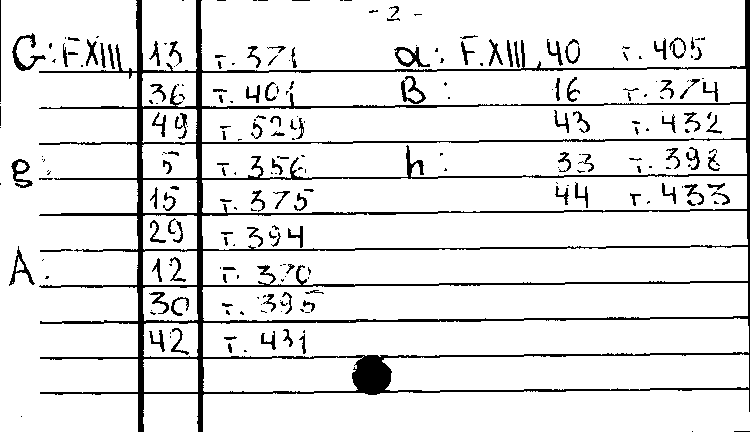 - 2 -
G: F.XIII, 13 т. 371 a: F.XIII, 40 т. 405
36 т. 401 B: 16 т. 374
49 т. 529 43 т. 432
g: 5 т. 356 h: 33 т. 398
15 т. 375 44 т. 433
29 т. 394
A: 12 т. 370
30 т. 395
42 т. 431